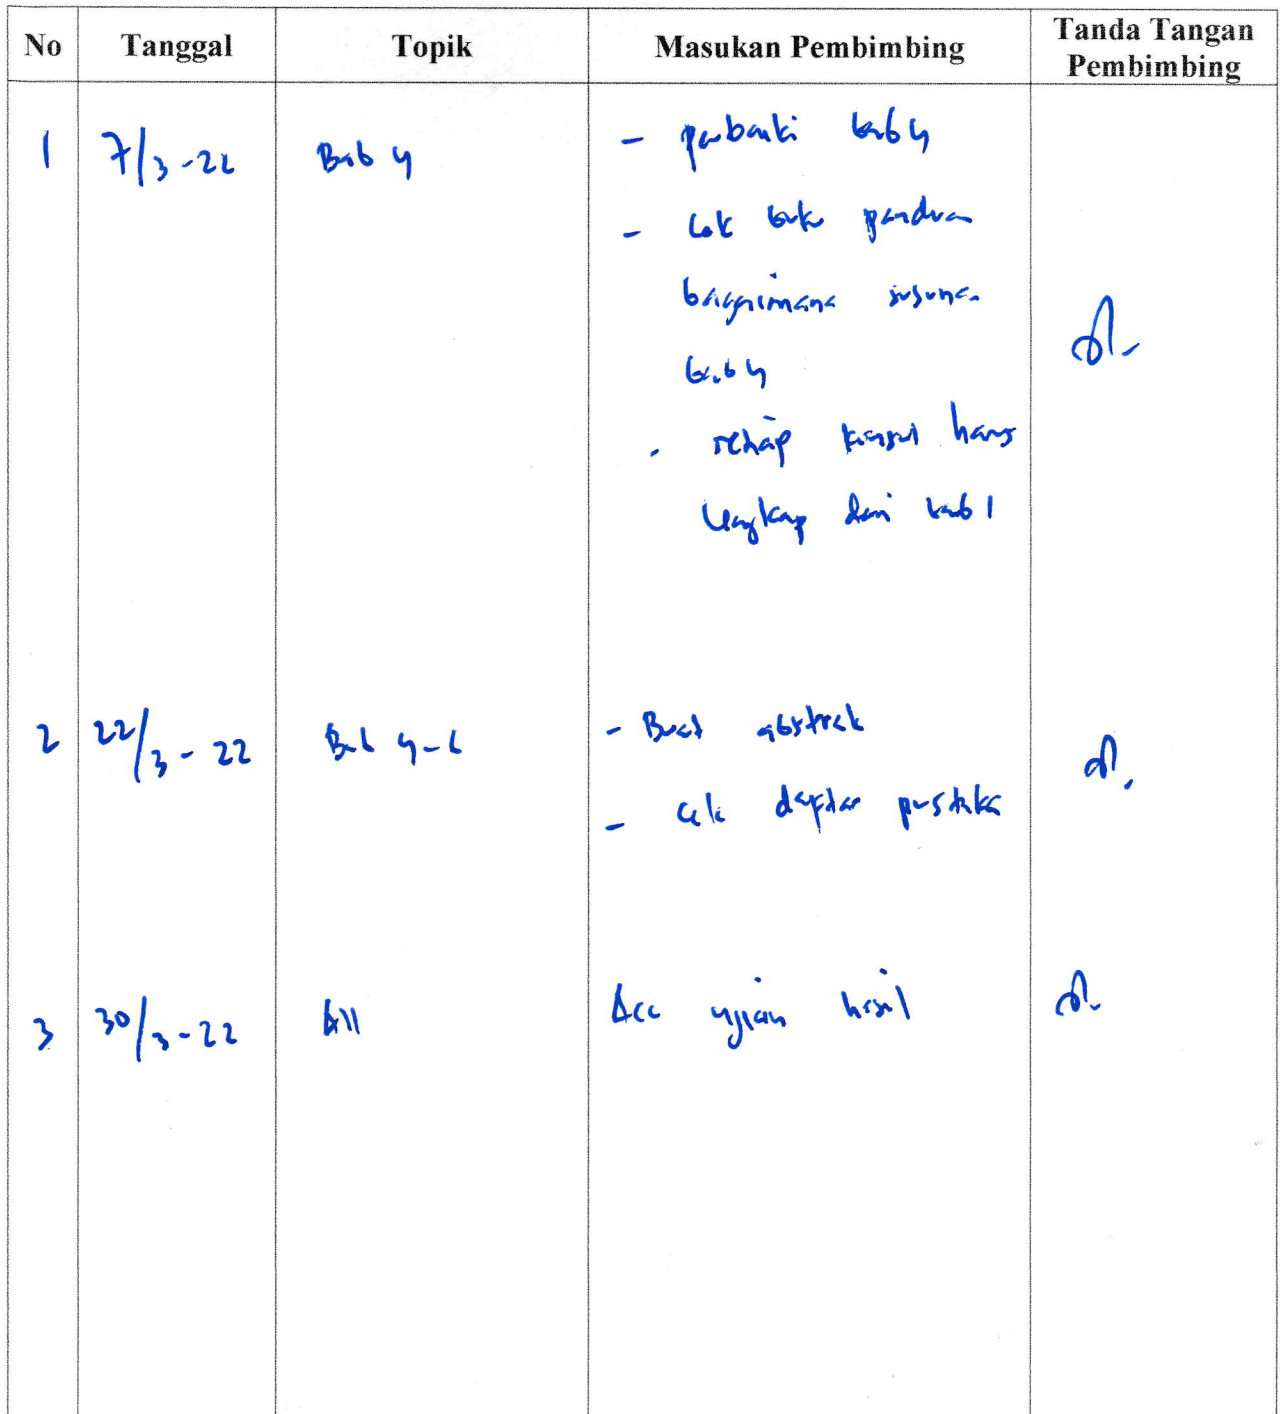 No Tanggal Topik Masukan Pembimbing Tanda Tangan Pembimbing
1 7/3-22 Bab 4 - perbaiki bab 4
- Cek buku panduan
bagaimana susunan
bab 4
- setiap konsul harus
lengkap dari bab 1
2 22/3-22 Bab 4-6 - Buat abstrak
- cek daftar pustaka
3 30/3-22 All Acc ujian hasil